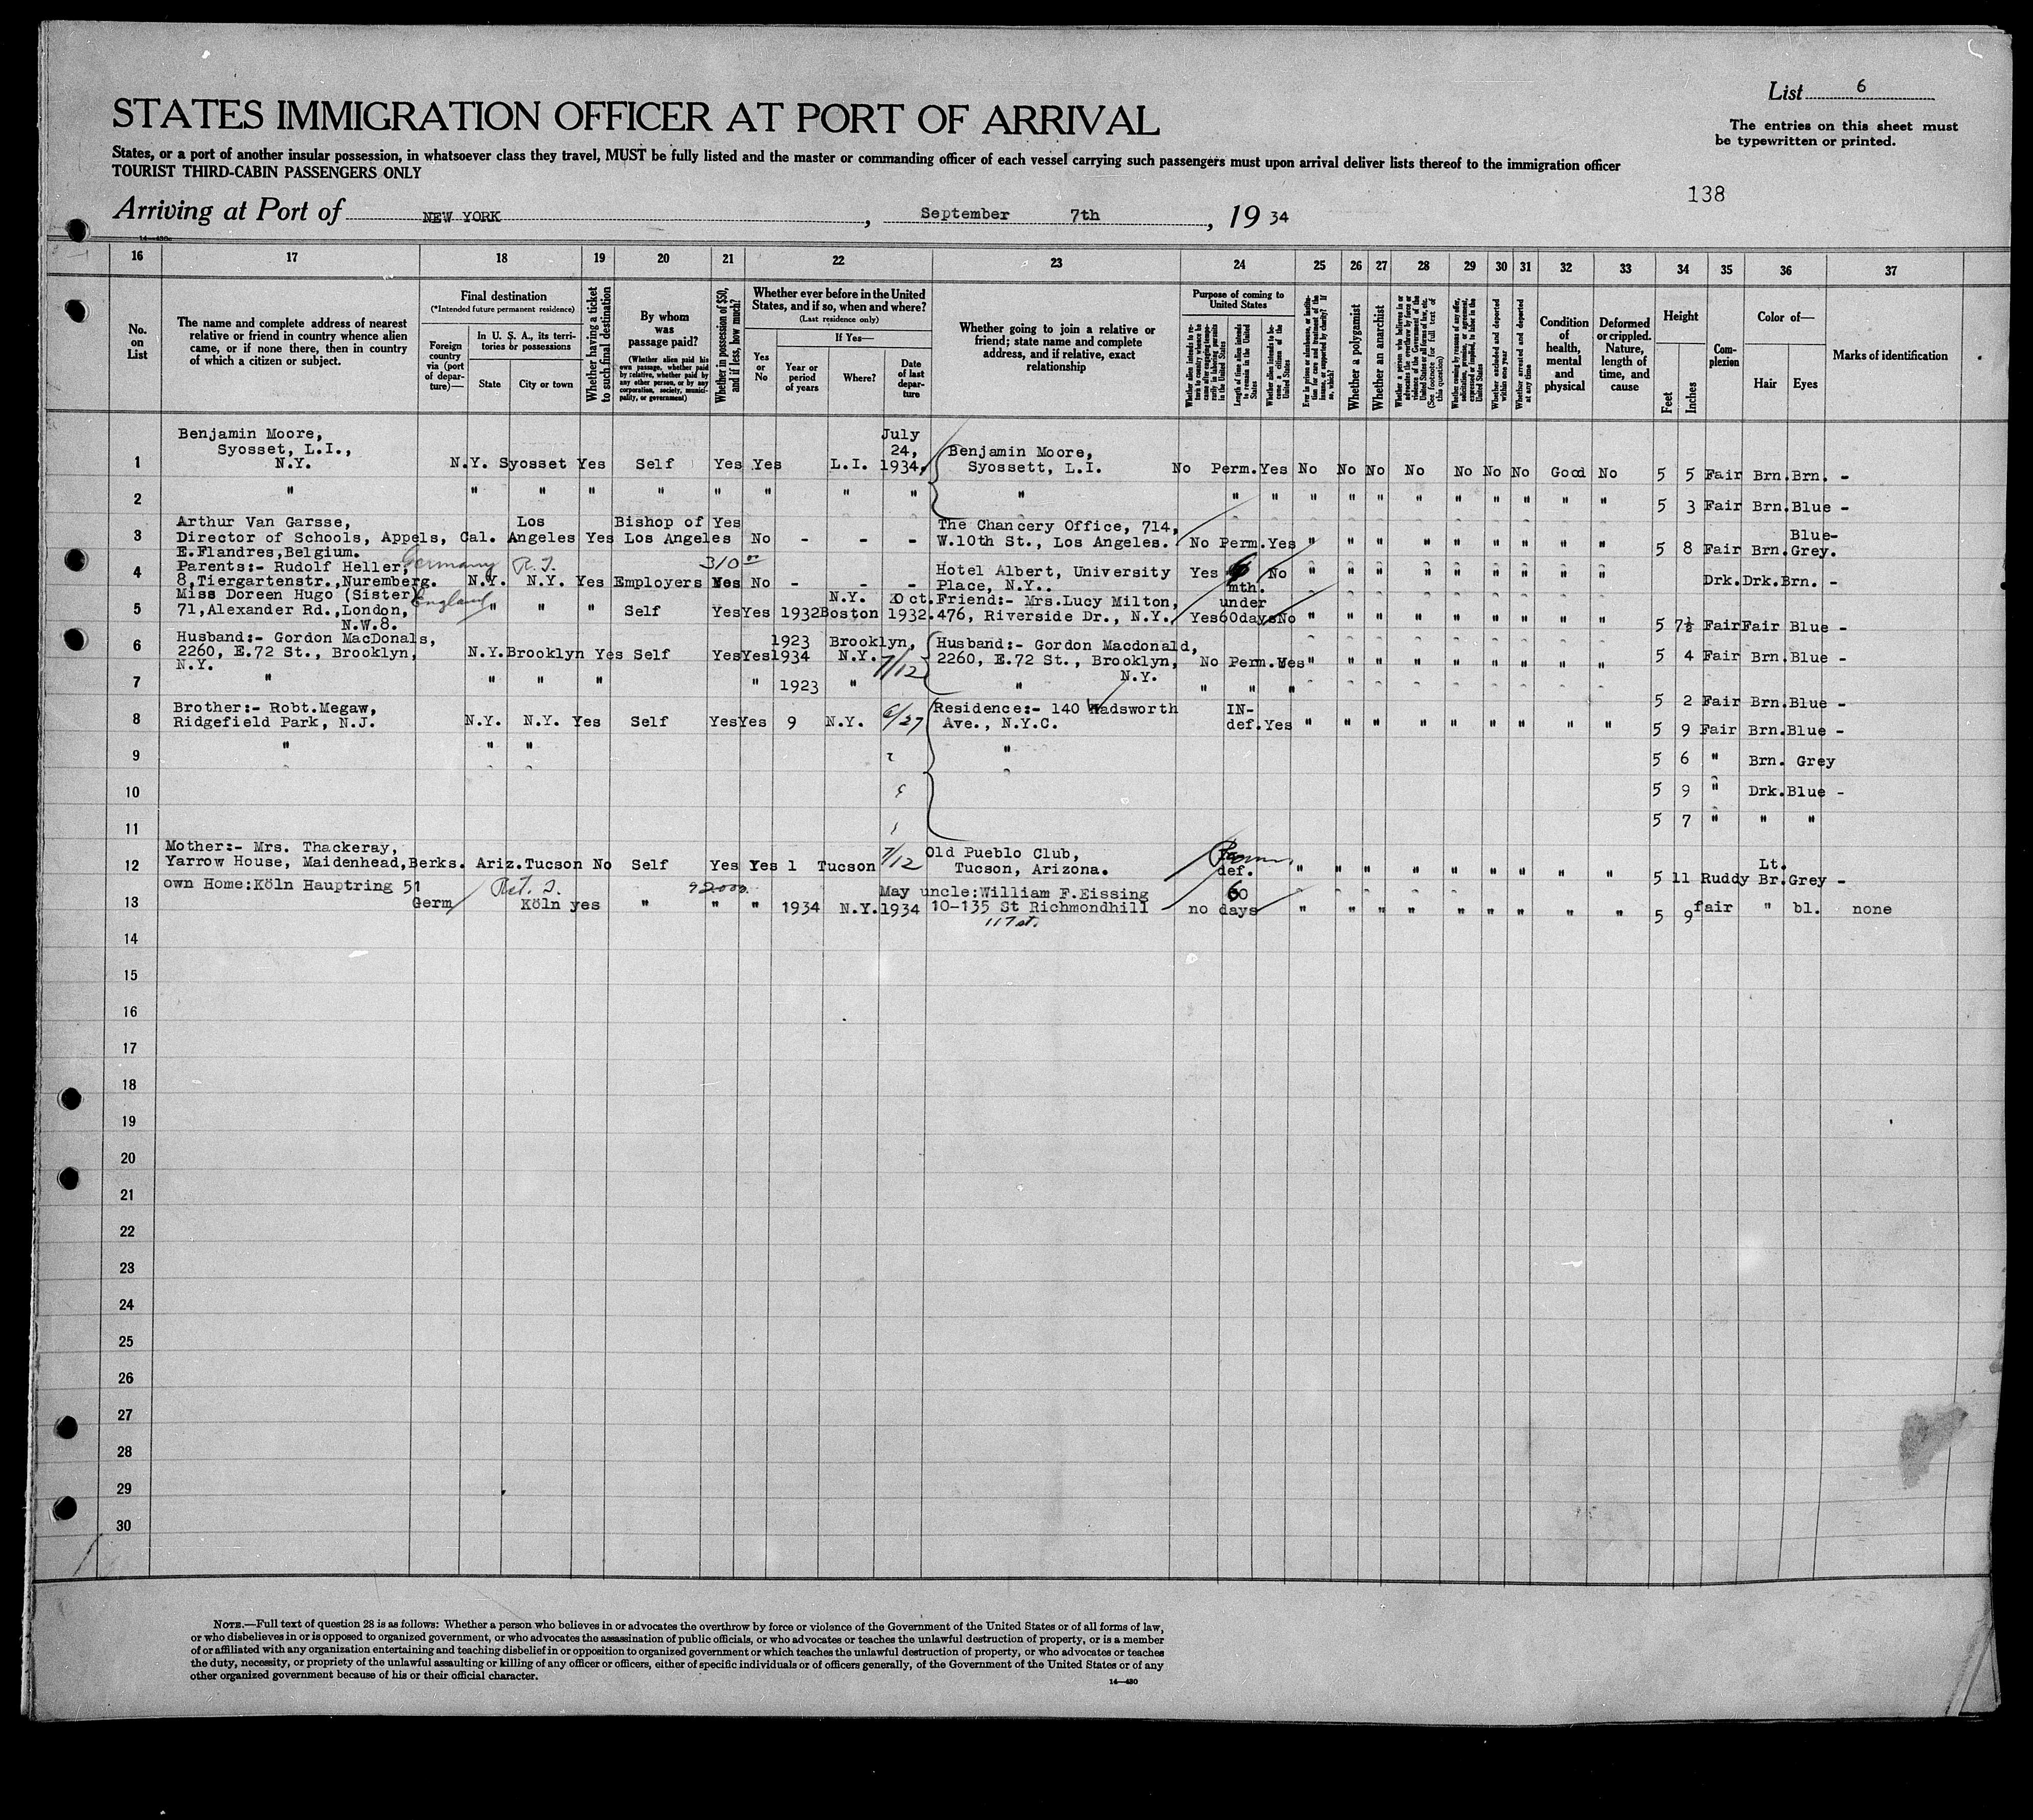 List 6
STATES IMMIGRATION OFFICER AT PORT OF ARRIVAL
The entries on this sheet must
be typewritten or printed.
States, or a port of another insular possession, in whatsoever class they travel, MUST be fully listed and the master or commanding officer of each vessel carrying such passengers must upon arrival deliver lists thereof to the immigration officer
TOURIST THIRD-CABIN PASSENGERS ONLY
138
Arriving at Port of NEW YORK, September 7th, 19 34
16 17 18 19 20 21 22 23 24 25 26 27 28 29 30 31 32 33 34 35 36 37
No. on List
The name and complete address of nearest
relative or friend in country whence alien
came, or if none there, then in country
of which a citizen or subject.
Final destination
(*Intended future permanent residence)
Foreign country via (port of departure)—
In U. S. A., its territories or possessions
State
City or town
Whether having a ticket to such final destination
By whom was passage paid?
(Whether alien paid his own passage, whether paid by relative, whether paid by any other person, or by any corporation, society, municipality, or government)
Whether in possession of $50, and if less, how much?
Whether ever before in the United
States, and if so, when and where?
(Last residence only)
Yes or No
If Yes—
Year or period of years
Where?
Date of last departure
Whether going to join a relative or
friend; state name and complete
address, and if relative, exact
relationship
Purpose of coming to
United States
Length of time alien intends to remain in the United States
Whether alien intends to become a citizen of the United States
Whether a polygamist
Whether an anarchist
Whether excluded and deported within one year
Whether arrested and deported at any time
Condition of health, mental and physical
Deformed or crippled. Nature, length of time, and cause
Height
Feet
Inches
Complexion
Color of—
Hair
Eyes
Marks of identification
1 Benjamin Moore, Syosset, L.I., N.Y. N.Y. Syosset Yes Self Yes Yes L.I. July 24, 1934, Benjamin Moore, Syossett, L.I. No Perm. Yes No No No No No No No Good No 5 5 Fair Brn. Brn. -
2 " " " " " " " " " " " " " " " " " " " " " " 5 3 Fair Brn. Blue -
3 Arthur Van Garsse, Director of Schools, Appels, E.Flandres, Belgium. Cal. Los Angeles Yes Bishop of Los Angeles Yes No - - - The Chancery Office, 714, W.10th St., Los Angeles. No Perm. Yes " " " " " " " " " 5 8 Fair Brn. Blue-Grey.
4 Parents:- Rudolf Heller, 8,Tiergartenstr.,Nuremberg. Germany R.T. N.Y. N.Y. Yes Employers 310 00 Yes No - - - Hotel Albert, University Place, N.Y.. Yes 6 mth. No " " " " " " " " " Drk. Drk. Brn. -
5 Miss Doreen Hugo (Sister) 71,Alexander Rd.,London, N.W.8. England " " " Self Yes Yes 1932 N.Y. Boston Oct. 1932. Friend:- Mrs.Lucy Milton, 476, Riverside Dr., N.Y. Yes under 60days No " " " " " " " " " 5 7½ Fair Fair Blue -
6 Husband:- Gordon MacDonals, 2260, E.72 St., Brooklyn, N.Y. N.Y. Brooklyn Yes Self Yes Yes 1923 1934 Brooklyn, N.Y. 7/12 Husband:- Gordon Macdonald, 2260, E.72 St., Brooklyn, N.Y. No Perm. Yes " " " " " " " " " 5 4 Fair Brn. Blue -
7 " " " " " 1923 " " " " " 5 2 Fair Brn. Blue -
8 Brother:- Robt.Megaw, Ridgefield Park, N.J. N.Y. N.Y. Yes Self Yes Yes 9 N.Y. 6/27 Residence:- 140 Wadsworth Ave., N.Y.C. IN-def. Yes " " " " " " " " " 5 9 Fair Brn. Blue -
9 " " " " 5 6 " Brn. Grey
10 5 9 " Drk. Blue -
11 5 7 " " "
12 Mother:- Mrs. Thackeray, Yarrow House, Maidenhead, Berks. Ariz. Tucson No Self Yes Yes 1 Tucson 7/12 Old Pueblo Club, Tucson, Arizona. Perm. def. " " " " " " " " " 5 11 Ruddy Lt. Br. Grey -
13 own Home:Köln Hauptring 51 Germ Ret. T. Köln yes " " " 1934 N.Y. May 1934 uncle:William F.Eissing 10-135 St Richmondhill 117 st. no 60 days " " " " " " " " " 5 9 fair " bl. none
14
15
16
17
18
19
20
21
22
23
24
25
26
27
28
29
30
NOTE.—Full text of question 28 is as follows: Whether a person who believes in or advocates the overthrow by force or violence of the Government of the United States or of all forms of law,
or who disbelieves in or is opposed to organized government, or who advocates the assassination of public officials, or who advocates or teaches the unlawful destruction of property, or is a member
of or affiliated with any organization entertaining and teaching disbelief in or opposition to organized government or which teaches the unlawful destruction of property, or who advocates or teaches
the duty, necessity, or propriety of the unlawful assaulting or killing of any officer or officers, either of specific individuals or of officers generally, of the Government of the United States or of any
other organized government because of his or their official character.
14—430